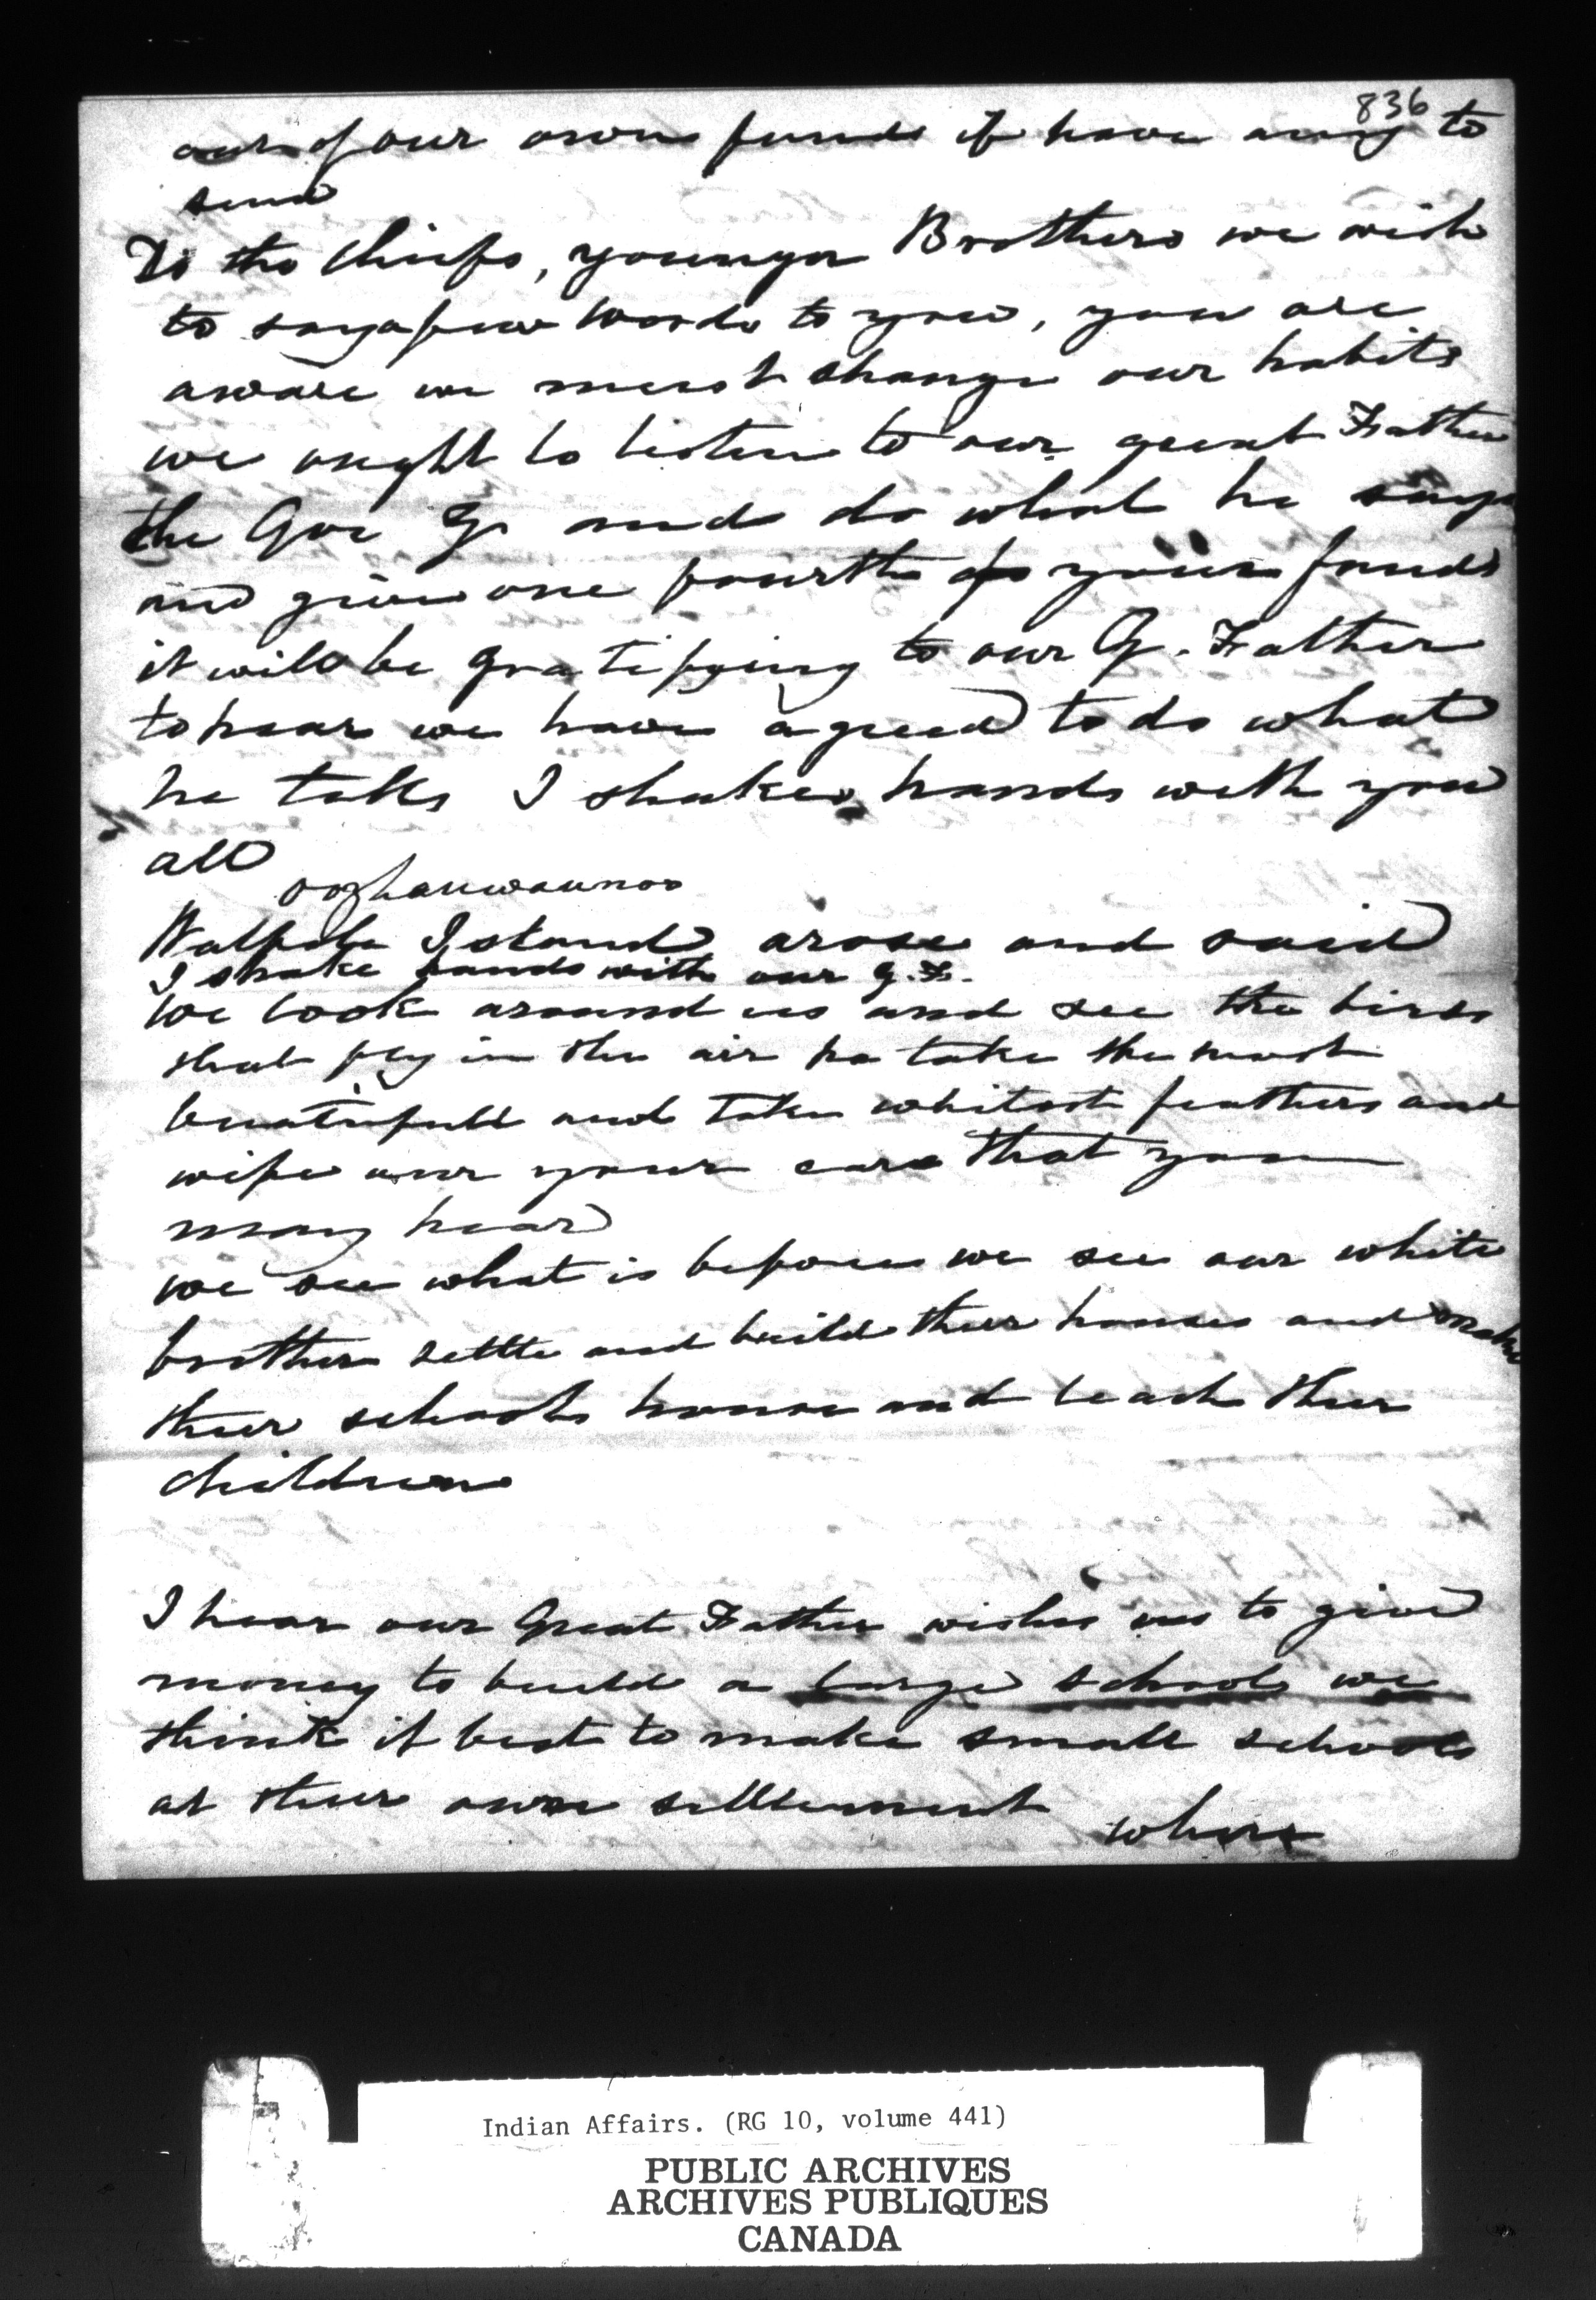 836
out of our own funds if have any to
send
To the Chiefs, younger Brothers we wish
to say a few words to you, you are
aware we must change our habits
we ought to listen to our great Father
the Gov G and do what he says
and give one fourth of your funds
it will be gratifying to our G. Father
to hear we have agreed to do what
he tells I shake hands with you
all
Walpole Island arose and said
I shake hands with our G. F.
We look around us and see the birds
that fly in the air ha take the most
beautifull and take whitest feathers and
wipe our your ears that you
may hear
we see what is before we see our white
brother settle and build their houses and make
their schools house and teach their
children
I hear our Great Father wishes us to give
money to build a large school we
think it best to make small schools
at their own settlement where
Indian Affairs. (RG 10, volume 441)
PUBLIC ARCHIVES
ARCHIVES PUBLIQUES
CANADA